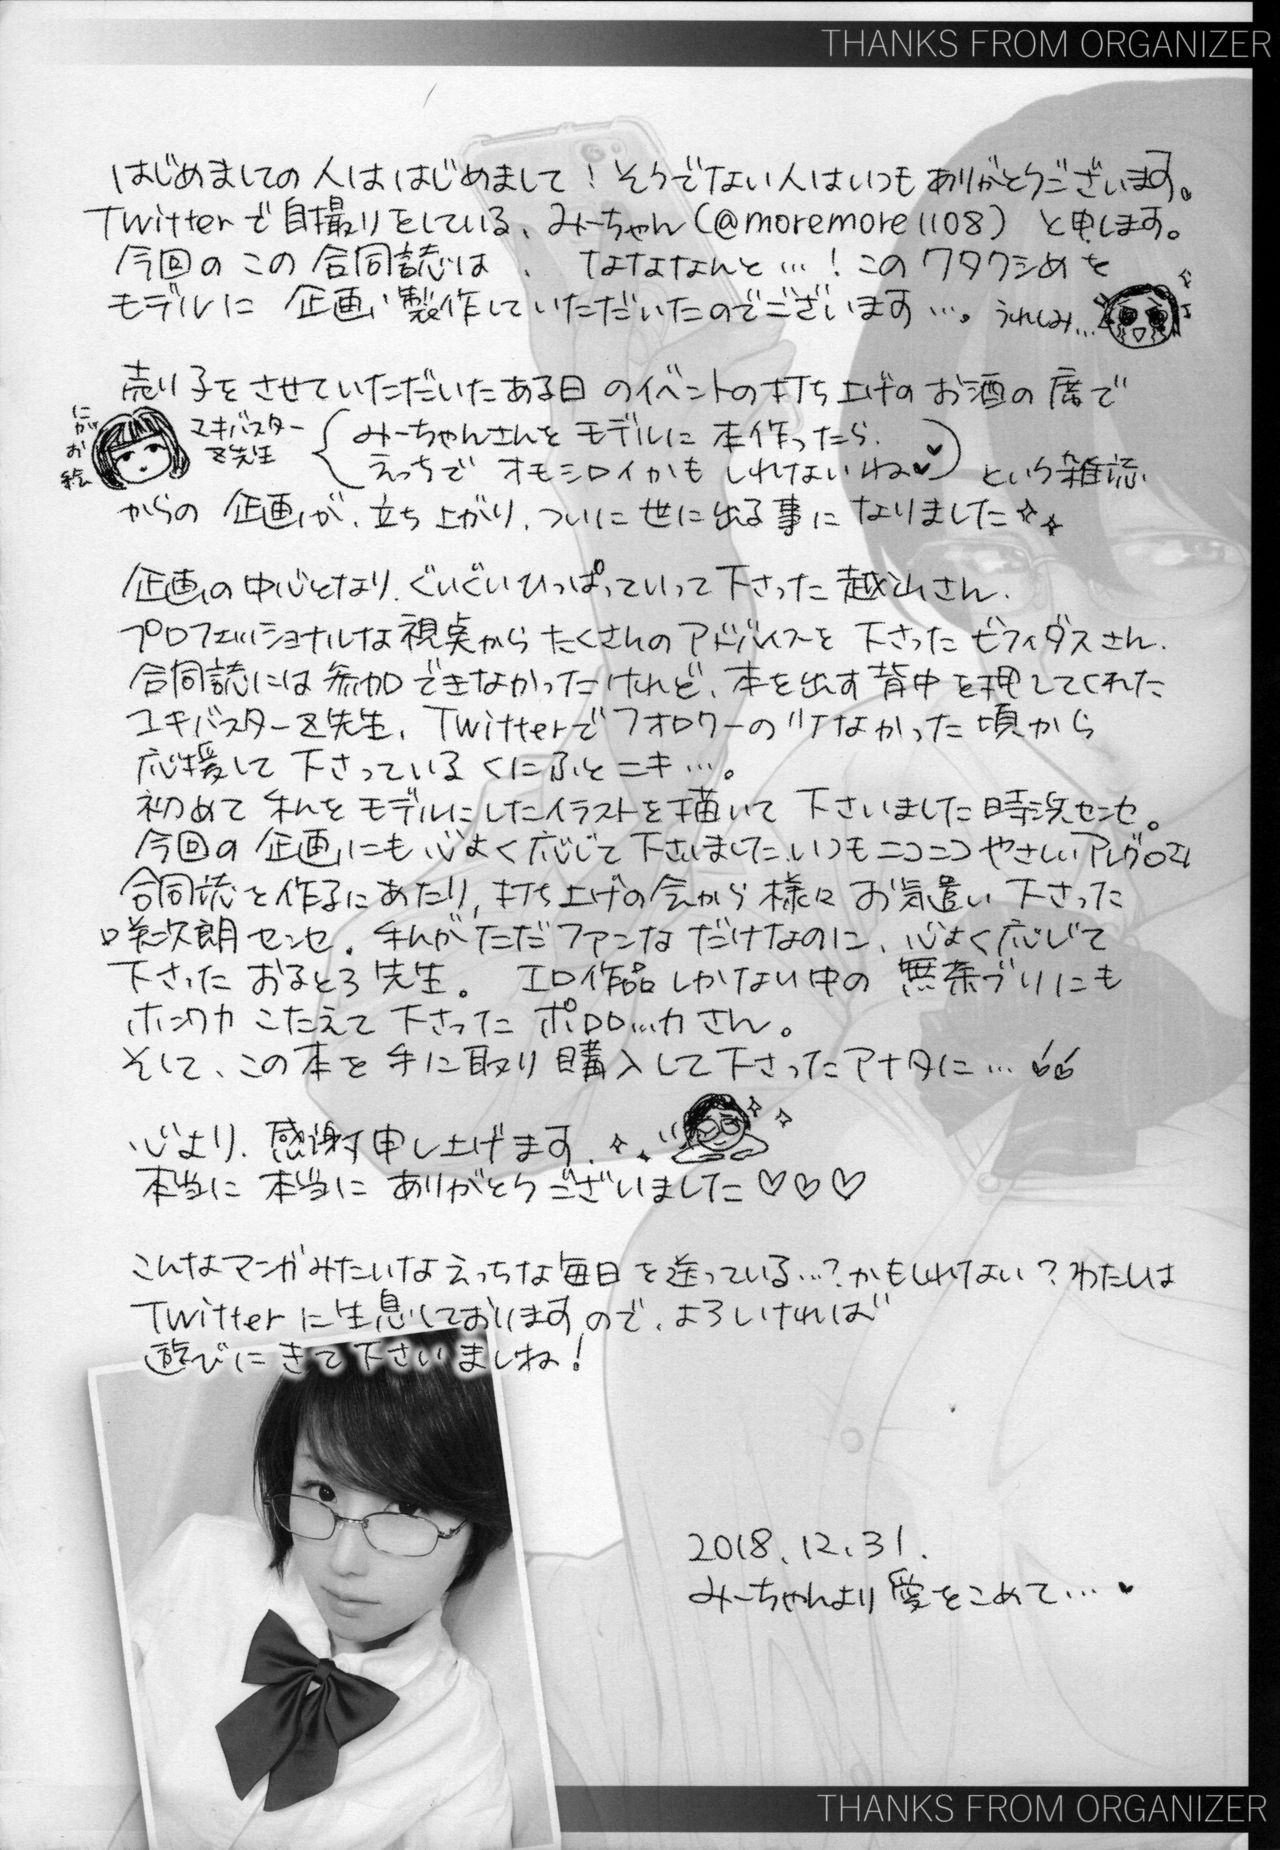 THANKS FROM ORGANIZER
はじめましての人ははじめまして！そうでない人はいつもありがとうございます。
Twitterで自撮りをしている、みーちゃん（@moremore1108）と申します。
今回のこの合同誌は、なななんと…！このワタクシめを
モデルに企画、製作していただいたのでございます…。うれしみ…
売り子をさせていただいたある日のイベントの打ち上げのお酒の席で
にがお絵
マキバスター
Z先生
みーちゃんさんをモデルに本作ったら、
えっちでオモシロイかもしれないね♥♥
という雑談
からの企画が、立ち上がり、ついに世に出る事になりました
企画の中心となり、ぐいぐいひっぱっていって下さった越山さん、
プロフェッショナルな視点からたくさんのアドバイスを下さったビフィダスさん、
合同誌には参加できなかったけれど、本を出す背中を押してくれた
ユキバスターZ先生、Twitterでフォロワーの少なかった頃から
応援して下さっているくにふとニキ…。
初めて私をモデルにしたイラストを描いて下さいました時浜センセ。
今回の企画にも心よく応じて下さいました、いつもニコニコやさしい
合同誌を作るにあたり、打ち上げの会から様々お気遣い下さった
次朗センセ。私がただファンなだけなのに、心よく応じて
下さったおるとろ先生。エロ作品しかない中の無茶ぶりにも
ホンワカこたえて下さったポロロッカさん。
そして、この本を手に取り購入して下さったアナタに…
心より、感謝申し上げます。
本当に本当にありがとうございました♡♡♡
こんなマンガみたいなえっちな毎日を送っている…？かもしれない？わたしは
Twitterに生息しておりますので、よろしければ
遊びにきて下さいましね！
2018.12.31.
みーちゃんより愛をこめて…♥
THANKS FROM ORGANIZER